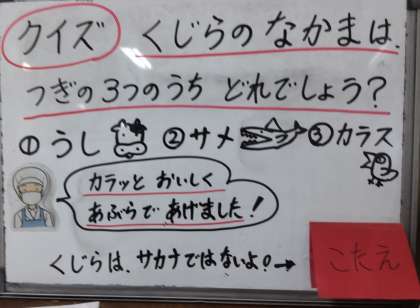 クイズ くじらの なかまは、
つぎの 3つのうち どれでしょう？
① うし ② サメ ③ カラス
カラッと おいしく
あぶらで あげました！
くじらは、サカナではないよ。→
こたえ